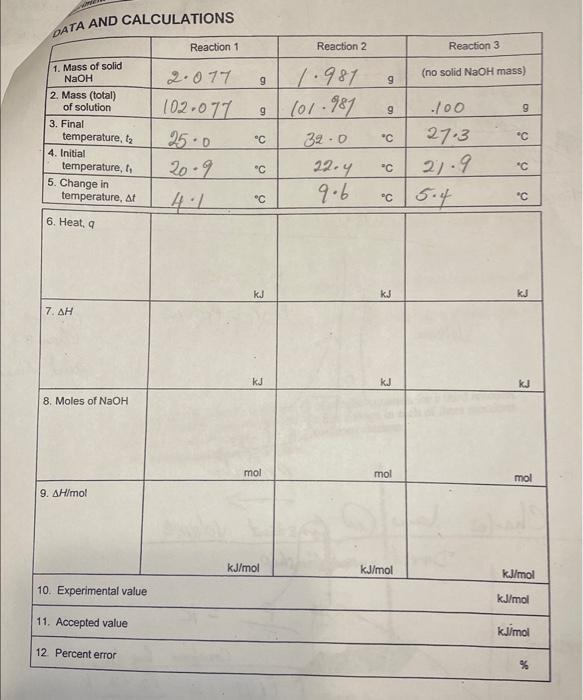 DATA AND CALCULATIONS
Reaction 1 Reaction 2 Reaction 3
1. Mass of solid NaOH 2.077 g 1.987 g (no solid NaOH mass)
2. Mass (total) of solution 102.077 g 101.987 g .100 g
3. Final temperature, t₂ 25.0 °C 32.0 °C 27.3 °C
4. Initial temperature, t₁ 20.9 °C 22.4 °C 21.9 °C
5. Change in temperature, Δt 4.1 °C 9.6 °C 5.4 °C
6. Heat, q
kJ kJ kJ
7. ΔH
kJ kJ kJ
8. Moles of NaOH
mol mol mol
9. ΔH/mol
kJ/mol kJ/mol kJ/mol
10. Experimental value kJ/mol
11. Accepted value kJ/mol
12. Percent error %